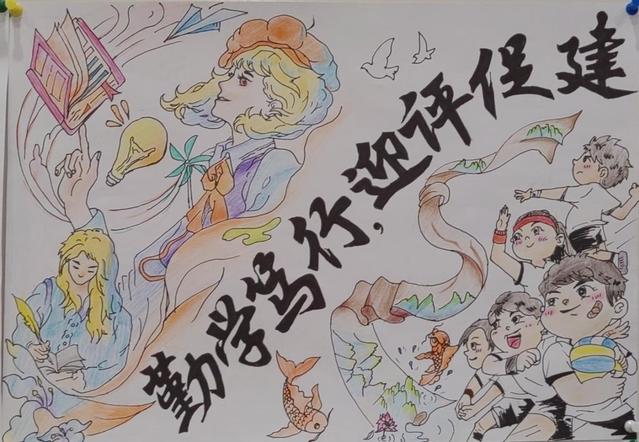 勤学笃行,迎评促建